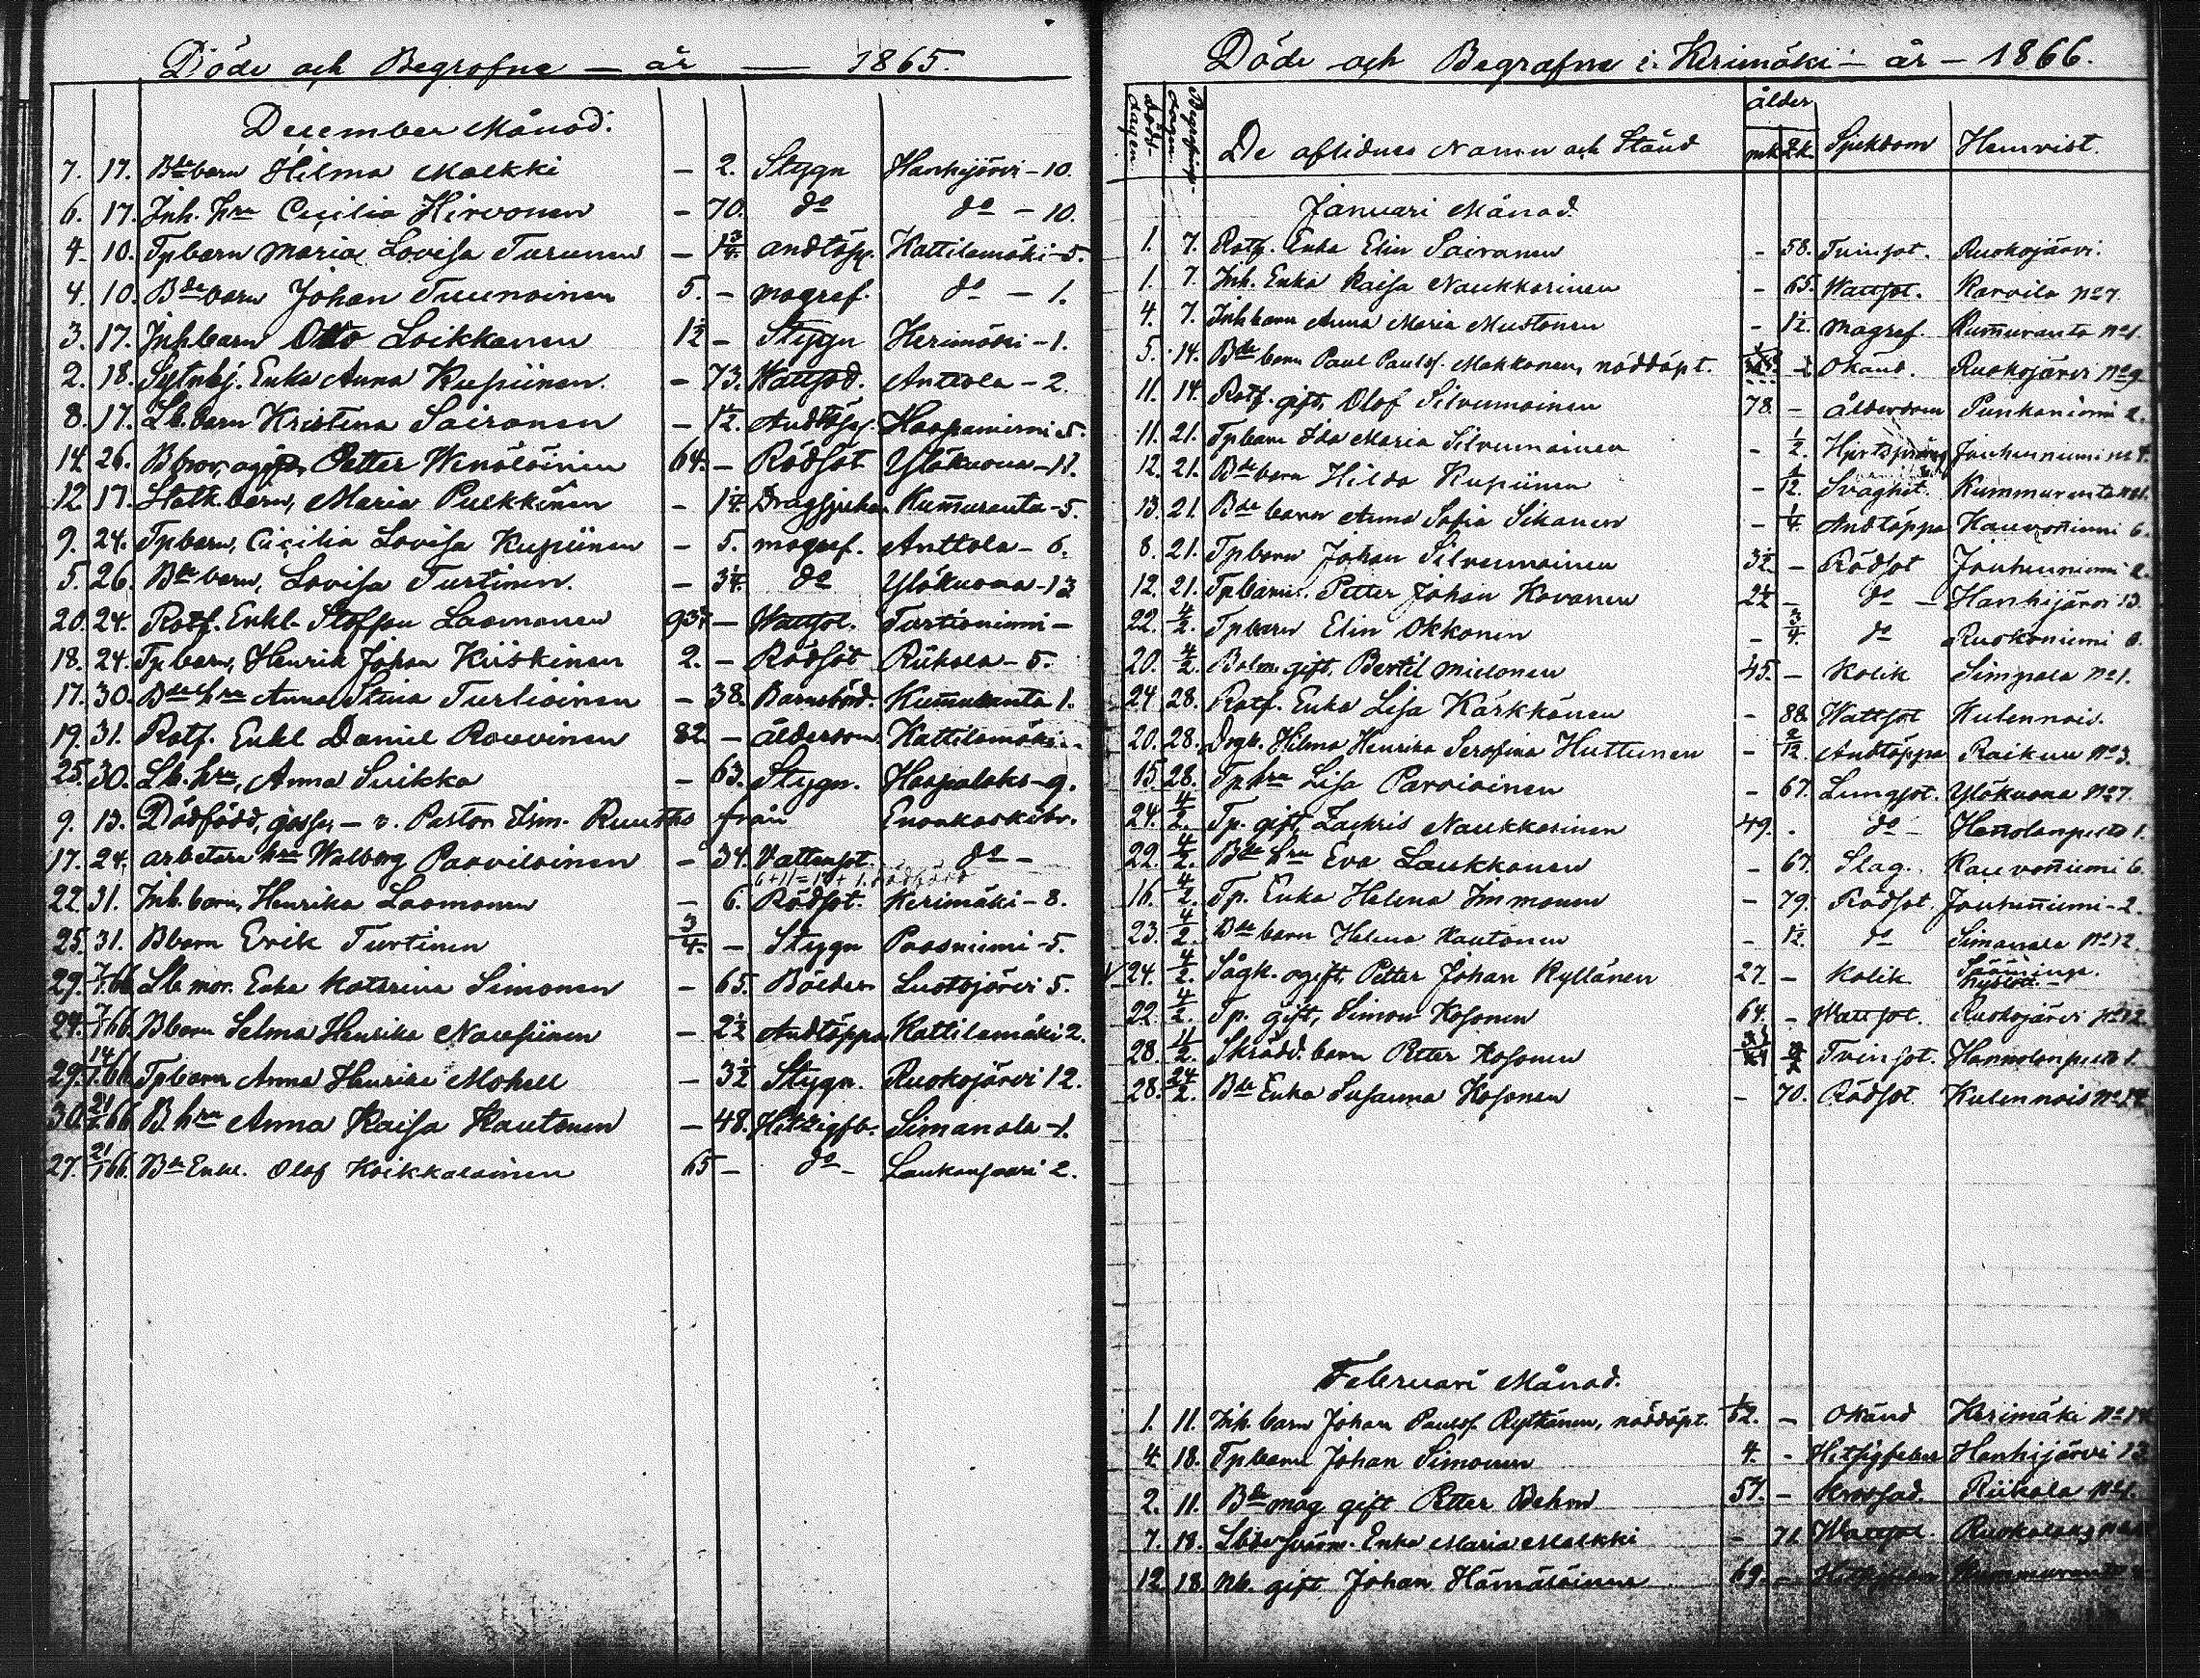 Döde och Begrafne – år – 1865.
December Månad.
7. 17. Bde barn Hilma Malkki – 2. Stygn Hanhijärvi – 10.
6. 17. Inh. hru Cecilia Hirvonen – 70. do do – 10.
4. 10. Tpbarn Maria Lovisa Turunen – 1 3/4. andtäp. Kattilamäki – 5.
4. 10. Bde barn Johan Tuunainen 5. – magref. do – 1.
3. 17. Inhbarn Otto Loikkanen 1½ – Stygn Kerimäki – 1.
2. 18. Sytnhj. Enka Anna Kupiinen. – 73. Wattsod. Anttola – 2.
8. 17. Lb. barn Kristina Sairanen – 1/12. Andtäp. Haapaniemi 5.
14. 26. Petter Wenäläinen 64. – Rödsot Yläkuona – 11.
12. 17. barn, Maria Pulkkinen – 1¼. Dragsjukan Kummuranta – 5.
9. 24. Tpbarn, Cicilia Lovisa Kupiinen – 5. magref. Anttola – 6.
5. 26. Bde barn, Lovisa Turtinen. – 3¼. do Yläkuona – 13
20. 24. Rotf. Enkl. Staffan Laamanen 93¼ – Wattsot. Turtianiemi –
18. 24. Tpbarn, Henrik Johan Kiiskinen 2. – Rödsot Riihola – 5.
17. 30. Bde hru Anna Stina Turtiainen – 38. Barnsbörd. Kummuranta 1.
19. 31. Rotf. Enkl Daniel Rouvinen 82 – ålderdom. Kattilamäki
25. 30. Lb. hru, Anna Suikka – 63. Stygn. Haapalaks – 9.
9. 13. Dödfödd, gosse, – v. Pastor Ism. Ruuths från Enonkoskibr.
17. 24. arbetare hru Walborg Paavilainen – 34. Vattensot. do –
6+11=17+1. dödfödd
22. 31. Inh. barn, Henrika Laamanen – 6. Rödsot. Kerimäki – 8.
25. 31. Bbarn Erik Turtinen 3/4. – Stygn Paasniemi – 5.
29. 7/1 66. Lb mor. Enka Katarina Simonen – 65. Bölder Lustojärvi 5.
24. 7/1 66. Bbarn Selma Henrika Naupiinen – 2½ Andtäppa Kattilamäki 2.
29. 14/1 66. Tpbarn Anna Henrika Mohell – 3½ Stygn. Ruokojärvi 12.
30. 21/1 66. B. hru Anna Kaisa Kautonen – 48. Hetzigfb. Simanala – 1.
27. 21/1 66. Bde Enkl. Olof Koikkalainen 65 – do – Laukansaari 2.
Döde och Begrafne i Kerimäki – år – 1866.
Döds-dagen. Begrafnings-dagen. De aflidnes Namn och Stånd ålder mk qk. Sjukdom Hemvist.
Januari Månad.
1. 7. Rotf. Enka Elin Sairanen – 58. Tvinsot. Ruokojärvi.
1. 7. Inh. Enka Kaisa Naukkarinen – 65. Wattsot. Karvila No 7.
4. 7. Inhbarn Anna Maria Mustonen – 1½. magref. Kummuranta No 1.
5. 14. Bde barn Paul Paulss. Makkonen, nöddöpt. Okänd. Ruokojärvi No 9
11. 14. Rotf. gift, Olof Silvennoinen 78. – ålderdom Punkaniemi 2.
11. 21. Tpbarn Ida Maria Silvennoinen – ½. Hjertsprång Jouhenniemi No 4.
12. 21. Bde barn Hilda Kupiinen – 1/12. Svaghet. Kummuranta
13. 21. Bde barn Anna Sofia Sikanen – ¼. Andtäppa Kauvonniemi 6.
8. 21. Tpbarn Johan Silvennoinen 3½ – Rödsot Jouhenniemi 2.
12. 21. Tpbarn. Petter Johan Kovanen 2¼ – do – Hanhijärvi 13.
22. 4/2. Tpbarn Elin Okkonen – 3/4. do Ruokoniemi 8.
20. 4/2. Bolm. gift. Bertil Mielonen 45. – Kolik Simpala No 1.
24. 28. Rotf. Enka Lisa Kärkkänen – 88. Wattsot Kulennois.
20. 28. Dogk. Hilma Henrika Serafina Huttunen – 2/12. Andtäppa Raikuu No 3.
15. 28. Tp hru Lisa Parviainen – 67. Lungsot. Yläkuona No 7.
24. 4/2. Tp. gift, Zachris Naukkarinen 49. – do – Hannolanpelto 1.
22. 4/2. Bde hru Eva Laukkanen – 67. Slag. Kauvonniemi 6.
16. 4/2. Tp. Enka Helena Immonen – 79. Rödsot. Jouhenniemi – 2.
23. 4/2. Bde barn Helena Kautonen – 1½. do Simanala No 12.
24. 4/2. Sågk. ogift, Petter Johan Kyllänen 27. – Kolik Sääminge.
22. 4/2. Tp. gift, Simon Kosonen 64. – Wattsot. Ruokojärvi No 12.
28. 11/2. Skrädd. barn Petter Kosonen Tvinsot. Hannolanpelto 1.
28. 24/2. Bde Enka Susanna Kosonen – 70. Rödsot. Kulennois No 14.
Februari Månad.
1. 11. Inh. barn Johan Paulss. Rytkönen, nöddöpt. 1/52. – Okänd Kerimäki No 14
4. 18. Tpbarn Johan Simonen 4. – Hetsigfeber Hanhijärvi 13
2. 11. Bde måg gift Petter Behm 57. – Riihola No 1.
7. 18. Enka Maria Malkki – 71 Wattsot. Ruokolaks
12. 18 Nb. gift Johan Hämäläinen 69. – Hetsigfeber Kummuranta